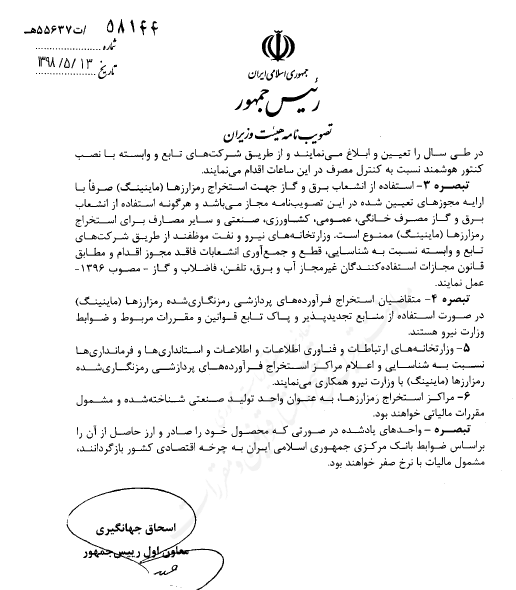 ۵۸۱۴۴ /ت۵۵۶۳۷هـ
شماره
تاریخ ۱۳۹۸/۵/۱۳
جمهوری اسلامی ایران
رئیس جمهور
تصویب نامه هیئت وزیران
در طی سال را تعیین و ابلاغ می‌نمایند و از طریق شرکت‌های تابع و وابسته با نصب
کنتور هوشمند نسبت به کنترل مصرف در این ساعات اقدام می‌نمایند.
تبصره ۳- استفاده از انشعاب برق و گاز جهت استخراج رمزارزها (ماینینگ) صرفاً با
ارایه مجوزهای تعیین شده در این تصویب‌نامه مجاز می‌باشد و هرگونه استفاده از انشعاب
برق و گاز مصرف خانگی، عمومی، کشاورزی، صنعتی و سایر مصارف برای استخراج
رمزارزها (ماینینگ) ممنوع است. وزارتخانه‌های نیرو و نفت موظفند از طریق شرکت‌های
تابع و وابسته نسبت به شناسایی، قطع و جمع‌آوری انشعابات فاقد مجوز اقدام و مطابق
قانون مجازات استفاده‌کنندگان غیرمجاز آب و برق، تلفن، فاضلاب و گاز - مصوب ۱۳۹۶-
عمل نمایند.
تبصره ۴- متقاضیان استخراج فرآورده‌های پردازشی رمزنگاری‌شده رمزارزها (ماینینگ)
در صورت استفاده از منابع تجدیدپذیر و پاک تابع قوانین و مقررات مربوط و ضوابط
وزارت نیرو هستند.
۵- وزارتخانه‌های ارتباطات و فناوری اطلاعات و اطلاعات و استانداری‌ها و فرمانداری‌ها
نسبت به شناسایی و اعلام مراکز استخراج فرآورده‌های پردازشی رمزنگاری‌شده
رمزارزها (ماینینگ) با وزارت نیرو همکاری می‌نمایند.
۶- مراکز استخراج رمزارزها، به عنوان واحد تولید صنعتی شناخته‌شده و مشمول
مقررات مالیاتی خواهند بود.
تبصره - واحدهای یادشده در صورتی که محصول خود را صادر و ارز حاصل از آن را
براساس ضوابط بانک مرکزی جمهوری اسلامی ایران به چرخه اقتصادی کشور بازگردانند،
مشمول مالیات با نرخ صفر خواهند بود.
اسحاق جهانگیری
معاون اول رییس‌جمهور